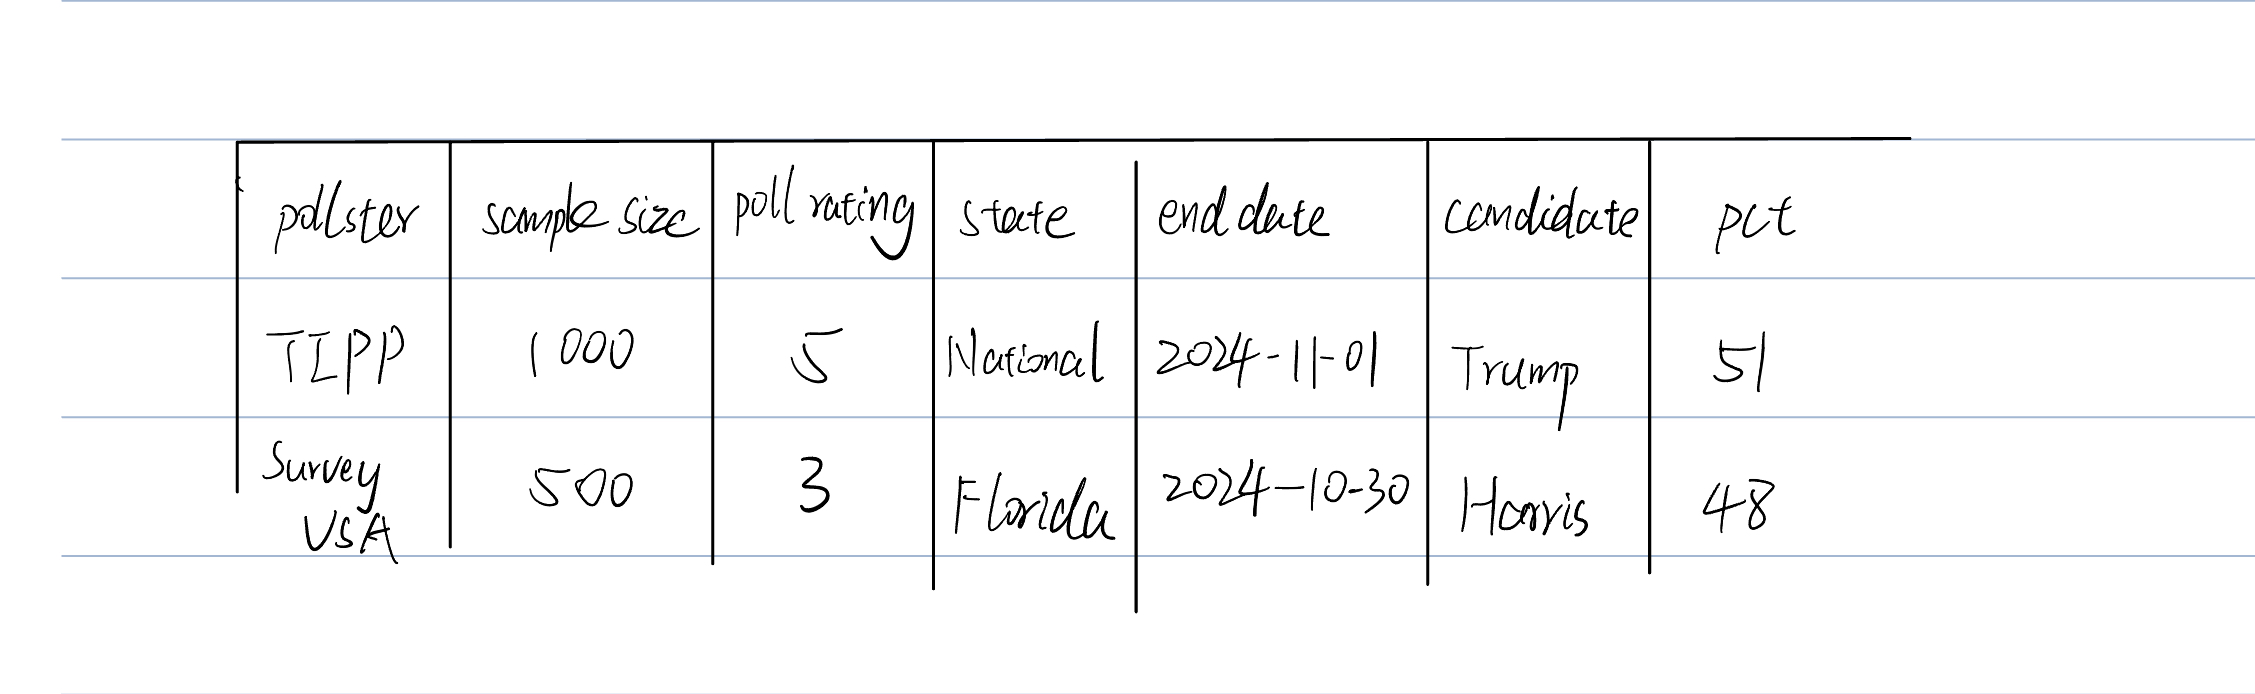 pollster sample size poll rating state end date candidate pct
TIPP 1000 5 National 2024-11-01 Trump 51
Survey USA 500 3 Florida 2024-10-30 Harris 48